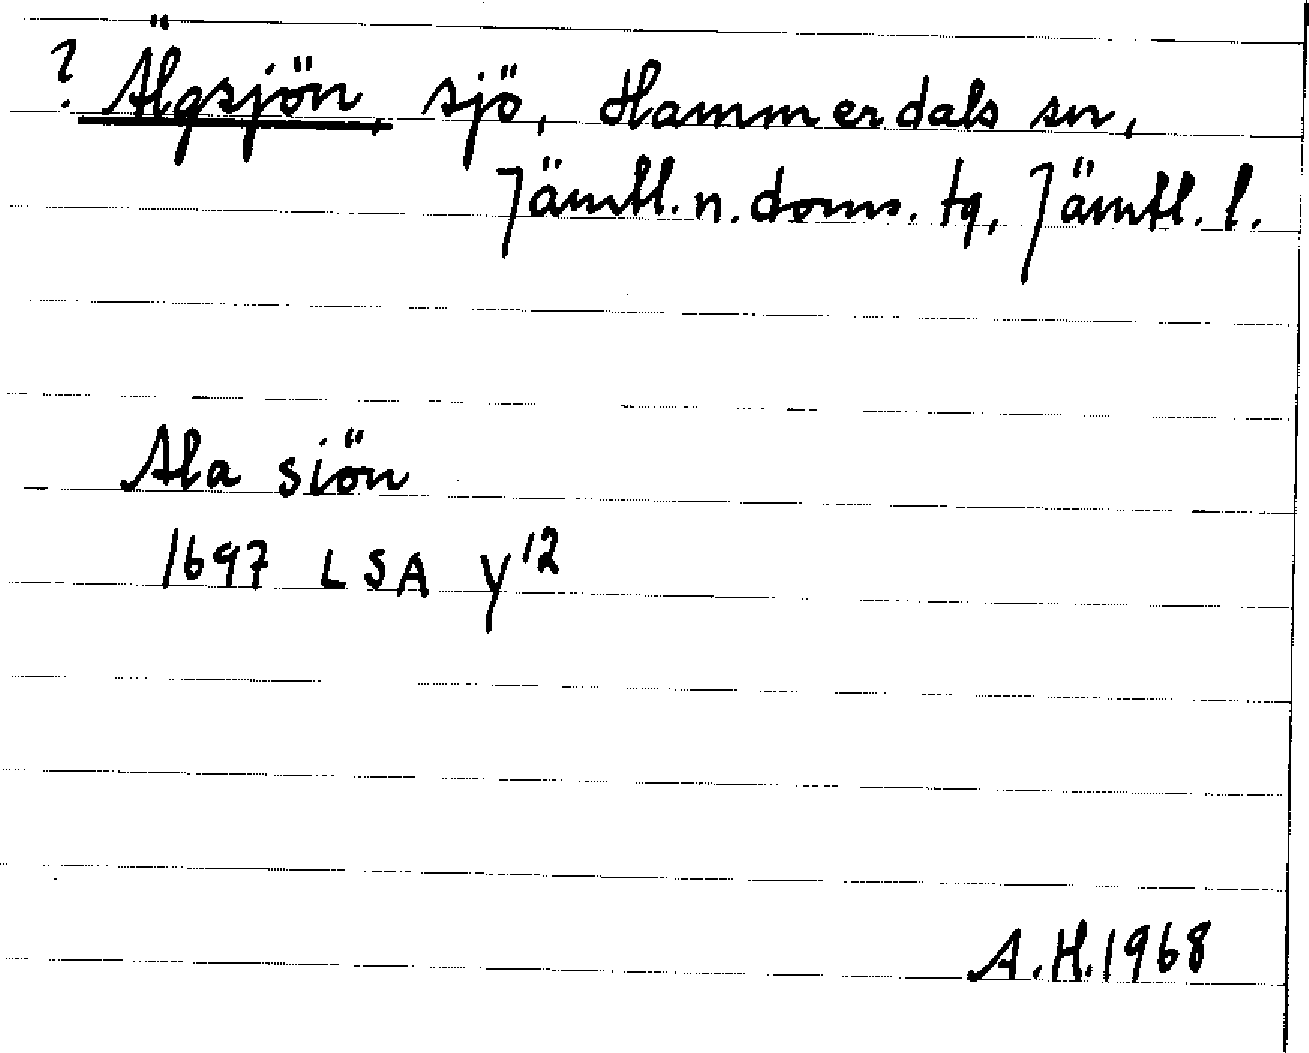 ? Älgsjön, sjö, Hammerdals sn,
Jämtl. n. doms. tg, Jämtl. l.
Ala siön
1697 LSA Y 12
A.H. 1968